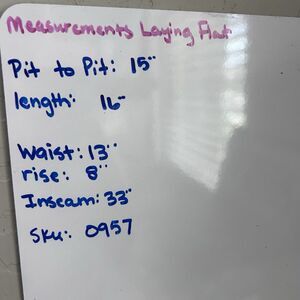 Measurements Laying Flat
Pit to Pit: 15"
length: 16"
Waist: 13"
rise: 8"
Inseam: 33"
Sku: 0957